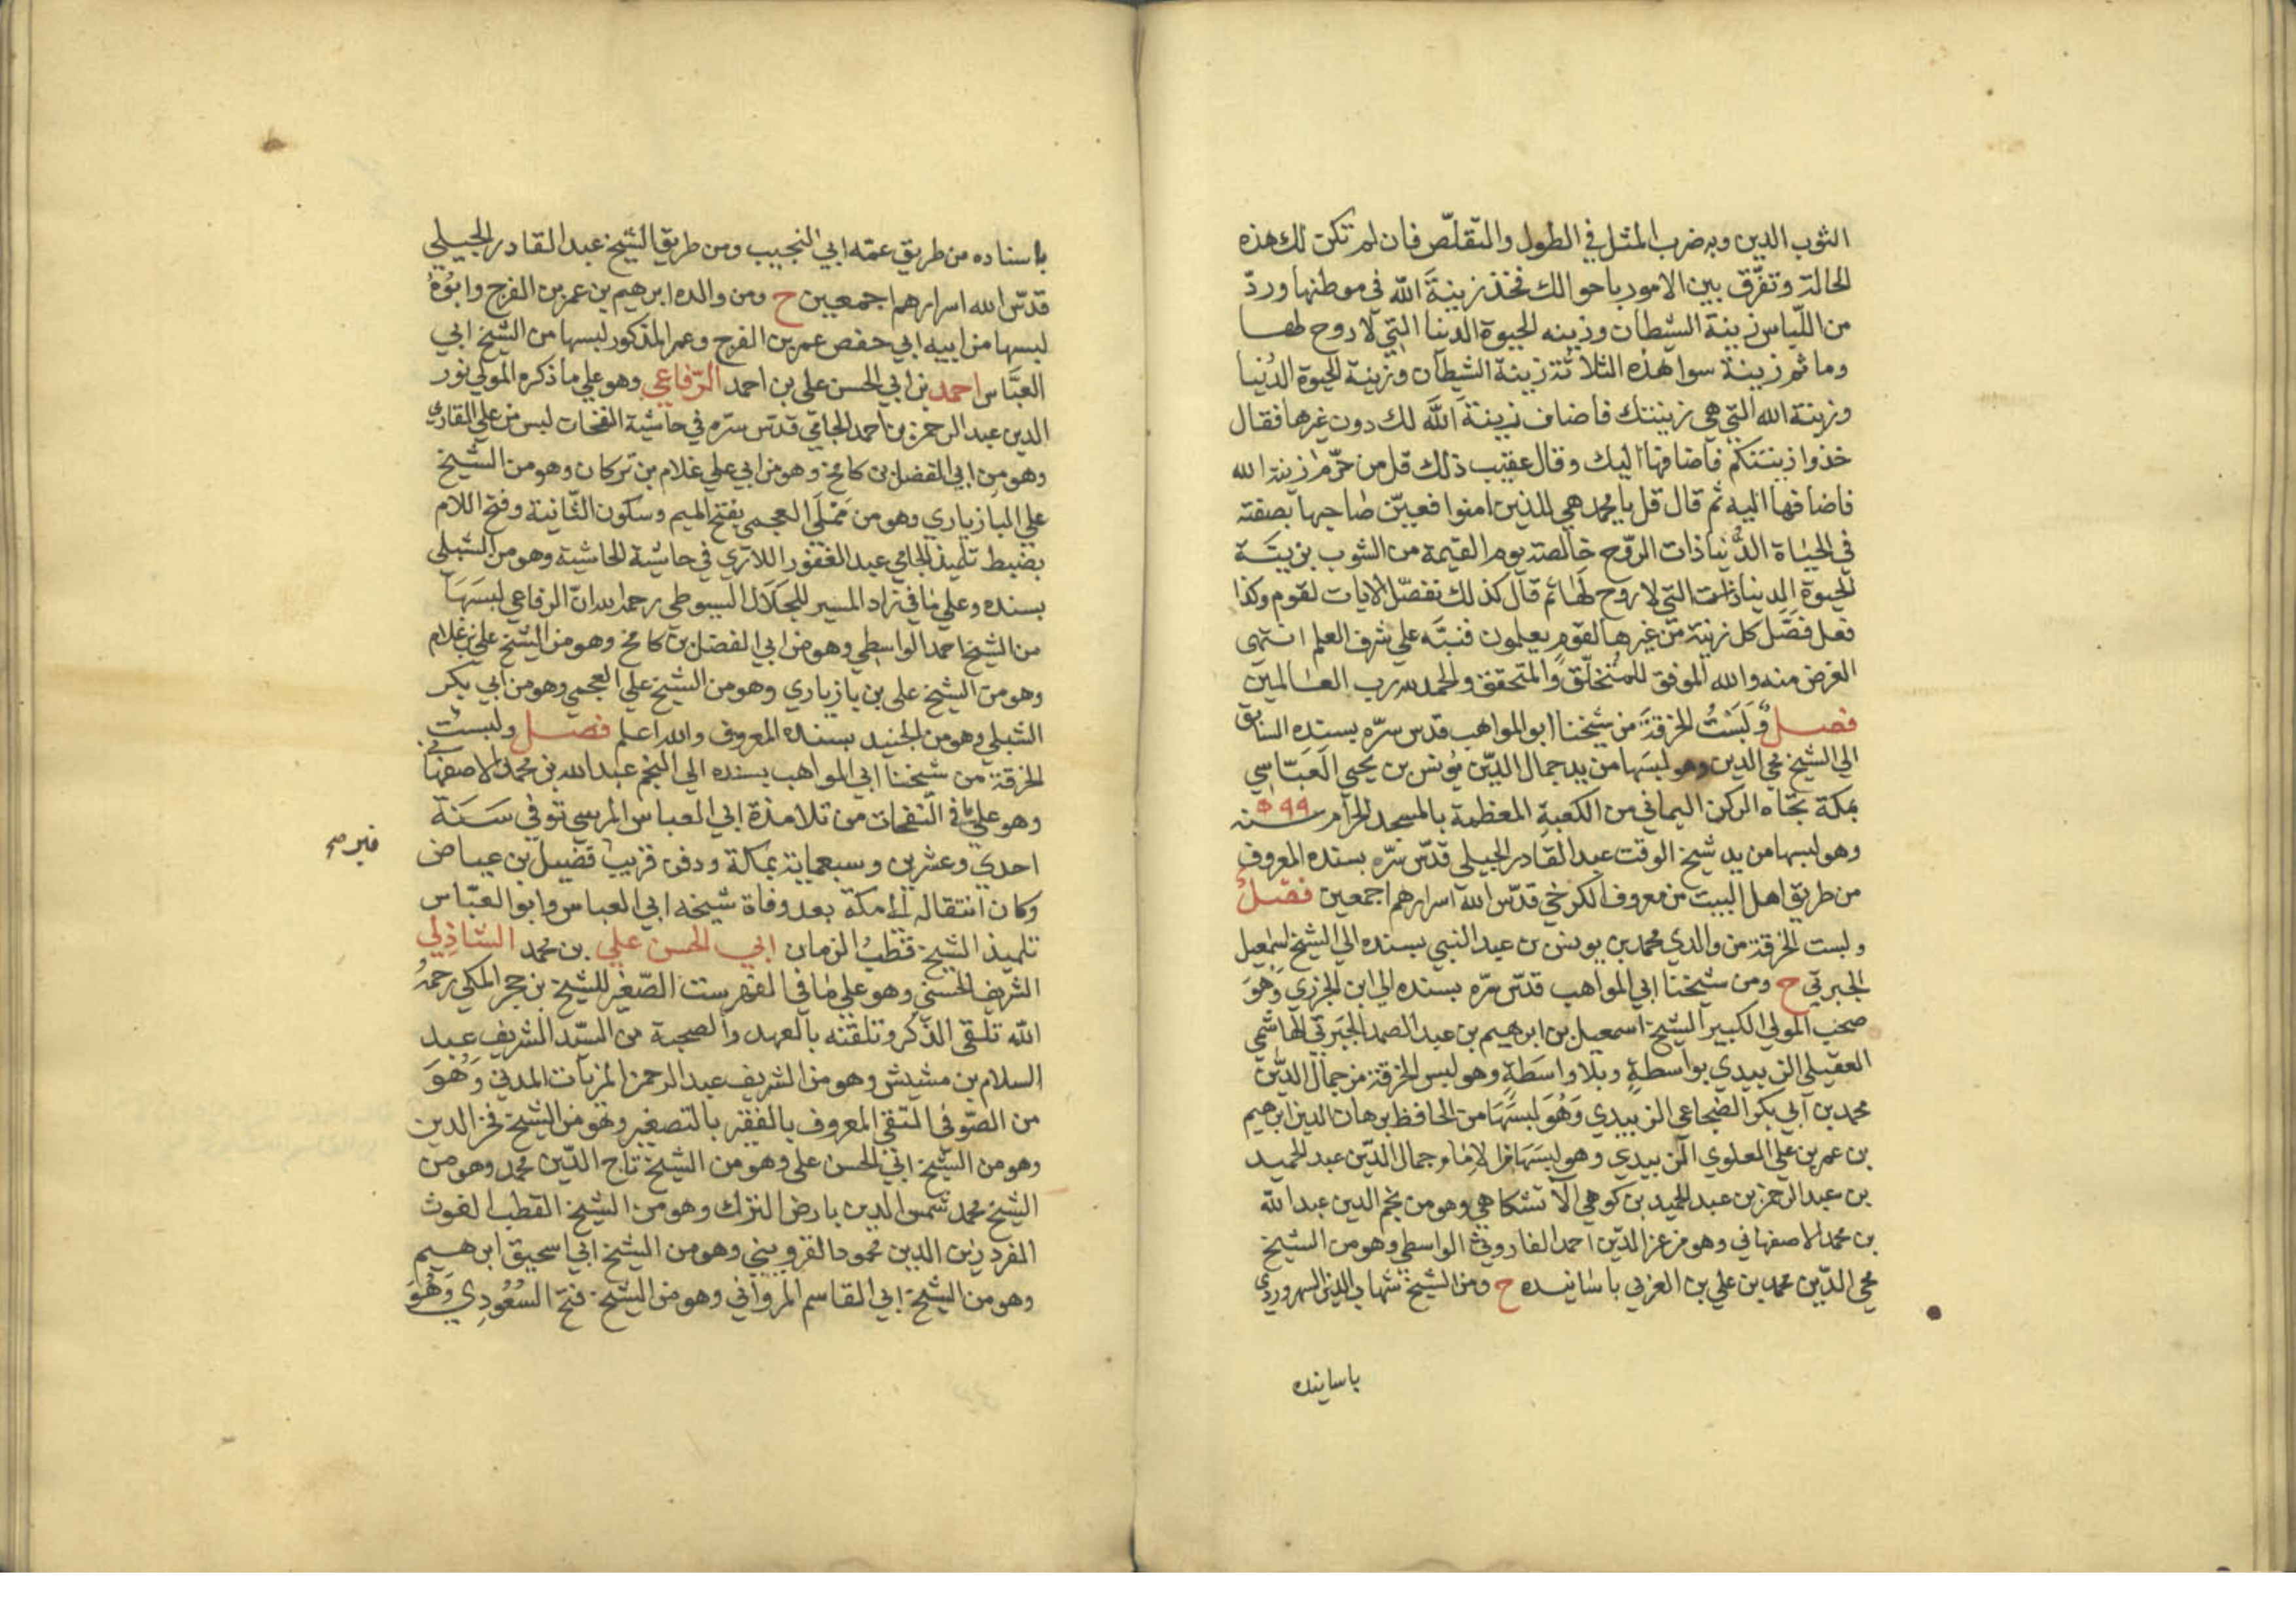 الثوب الدين وبه ضرب المثل في الطول والتقلّص فان لم تكن لك هذه
الحالة وتفرّق بين الامور باحوالك فخذ زينة الله في موطنها وردّ
من اللّباس زينة الشيطان وزينه الحيوة الدنيا التي لا روح لها
وما ثم زينة سوا هذه الثلاثة زينة الشيطان وزينة الحيوة الدُنيا
وزينة الله التي هي زينتك فاضاف زينة الله لك دون غيرها فقال
خذوا زينتكم فاضافها اليك وقال عقيب ذلك قل من حرّم زينة الله
فاضافها اليه ثم قال قل يا محمد هي للذين امنوا فعيّن صاحبها بصفته
في الحياة الدُّنيا ذات الروّح خالصة يوم القيمة من الشوب بزينة
الحيوة الدنيا ذات التي لا روح لها ثم قال كذلك نفصّل الايات لقوم وكذا
فعل فصّل كل زينة من غيرها لقوم يعلمون فنبّه علي شرف العلم انتهى
الغرض منه والله الموفق للمتخلّق والمتحقق والحمد لله رب العالمين
فصل ولبست الخرقة من شيخنا ابو المواهب قدس سرّه بسنده السابق
الي الشيخ محي الدين وهو لبسها من يد جمال الديّن يؤنس بن يحيى العَبّاسي
بمكة تجاه الركن اليماني من الكعبة المعظمة بالمسجد الحرام سنه ٥٩٩
وهو لبسها من يد شيخ الوقت عبد القادر الجيلي قدّس سّره بسنده المعروف
من طريق اهل البيت من معروف الكرخي قدّس الله اسرارهم اجمعين فصل
ولبست الخرقة من والدي محمد بن يونس بن عبد النبي بسنده الي الشيخ اسمعيل
الجبرتي ح ومن شيخنا ابي المواهب قدّس سّره بسنده الي ابن الجزري وَهُوَ
صحب المولي الكبير الشيخ اسمعيل بن ابرهيم بن عبد الصمد الجَبَرتي الهاشمي
العقيلي الزبيدي بواسطةٍ وبلا واسَطةٍ وهو لبس الخرقة من جمال الديّن
محمد بن ابي بكر الضجاعي الزبيدي وَهُوَ لبسَهَا من الحافظ برهان الدين ابرهيم
بن عمر بن علي العلوي الزبيدي وهو لبسَهَا من الامام جمال الديّن عبد الحميد
بن عبد الرحمن بن عبد الحميد بن كوهي الاتشكاهي وهو من نجم الدين عبد الله
بن محمد الاصفهاني وهو من عز الديّن احمد الفاروثي الواسطي وهو من الشيخ
محي الديّن محمد بن علي بن العربي باسانيده ح ومن الشيخ شهاب الدين السهروردي
باسانيده
باسناده من طريق عمّه ابي النجيب ومن طريق الشيخ عبد القادر الجيلي
قدّس الله اسرارهم اجمعين ح ومن والده ابرهيم بن عمر بن الفرج وابوُهُ
لبسها من ابيه ابي حفص عمر بن الفرج وعمر المذكور لبسها من الشيخ ابي
العبَّاس احمد بن ابي الحسن علي بن احمد الرّفاعي وهو علي ما ذكره المولي نور
الدين عبد الرحمن بن احمد الجامي قدّس سرّه في حاشية النفحات لبس من علي القاري
وهو من ابي الفضل بن كامخ وهو من ابي علي غلام بن تركان وهو من الشيخ
علي البازياري وهو من مَمْلَي العجمي بفتح الميم وسكون الثّانية وفتح اللام
بضبط تلميذ الجامي عبد الغفور اللاري في حاشية الحاشية وهو من الشبلي
بسنده وعلي ما في زاد المسير للجَلَال السيوطي رحمه الله انّ الرفاعي لبسَهَا
من الشيخ احمد الواسطي وهو من ابي الفضل بن كامخ وهو من الشيخ علي بن غلام
وهو من الشيخ علي بن بازياري وهو من الشيخ علي العجمي وهو من ابي بكر
الشبلي وهو من الجنيد بسنده المعروف والله اعلم فصل ولبست
الخرقة من شيخنا ابي المواهب بسنده الي النجم عبد الله بن محمد الاصفهاني
وهو علي ما في النفحات من تلامذة ابي العباس المرسي توفي سَنَة
احدي وعشرين وسبعماية بمكة ودفن قريب فضيل بن عياض
وكان انتقاله الى مكة بعد وفاة شيخه ابي العباس وابو العبّاس
تلميذ الشيخ قطبُ الزمان ابي الحسن علي بن محمد الشاذِلي
الشريف الحسني وهو علي ما في الفهرست الصّغير للشيخ بن حجر المكي رحمهُ
الله تلقى الذّكر وتلقنه بالعهد والصحبة من السيّد الشريف عبد
السلام بن مشيش وهو من الشريف عبد الرحمن المزيات المدني وَهُوَ
من الصّوفي التقي المعروف بالفقير بالتصغير وهو من الشيخ فخر الدين
وهو من الشيخ ابي الحسن علي وهو من الشيخ تاج الديّن محمد وهو من
الشيخ محمد شمس الدين بارض الترك وهو من الشيخ القطب الغوث
الفرد زين الدين محمود القزويني وهو من الشيخ ابي اسحيق ابرهيم
وهو من الشيخ ابي القاسم المرواني وهو من الشيخ فتح السعُودِي وَهُوَ